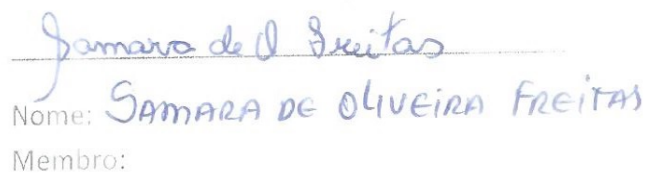 Samara de O Freitas
Nome: SAMARA DE OLIVEIRA FREITAS
Membro: